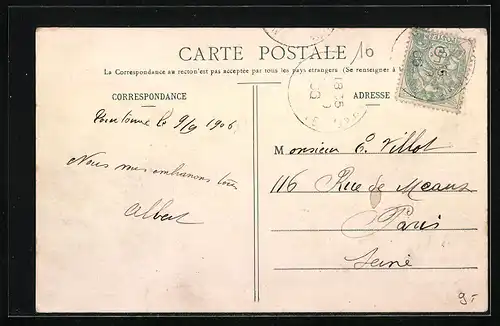 CARTE POSTALE
10
La Correspondance au recto n'est pas acceptée par tous les pays étrangers (Se renseigner à
CORRESPONDANCE
ADRESSE
le 9/9 1906
Nous vous embrassons tous
Albert
Monsieur E. Villot
116 Rue de Meaux
Paris
Seine
18 35